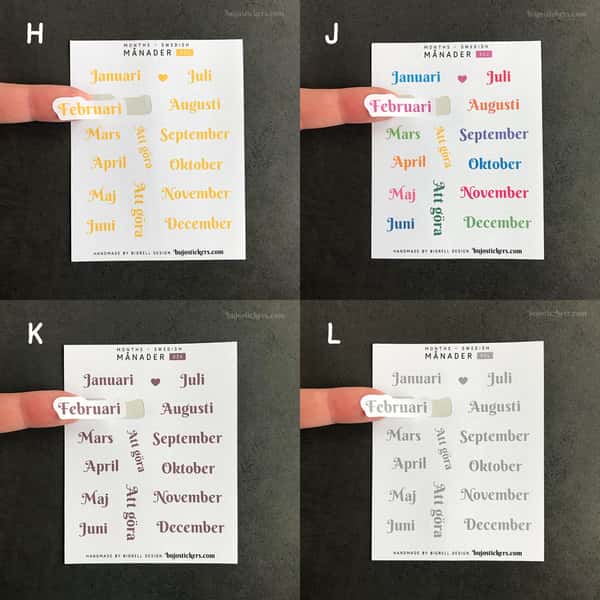 H
bujostickers.com
MONTHS - SWEDISH
MÅNADER
Januari Juli
Februari Augusti
Mars Att göra September
April Oktober
Maj Att göra November
Juni December
HANDMADE BY BIGRELL DESIGN bujostickers.com
J
bujostickers.com
MONTHS - SWEDISH
MÅNADER
Januari Juli
Februari Augusti
Mars Att göra September
April Oktober
Maj Att göra November
Juni December
HANDMADE BY BIGRELL DESIGN bujostickers.com
K
bujostickers.com
MONTHS - SWEDISH
MÅNADER
Januari Juli
Februari Augusti
Mars Att göra September
April Oktober
Maj Att göra November
Juni December
HANDMADE BY BIGRELL DESIGN bujostickers.com
L
bujostickers.com
MONTHS - SWEDISH
MÅNADER
Januari Juli
Februari Augusti
Mars Att göra September
April Oktober
Maj Att göra November
Juni December
HANDMADE BY BIGRELL DESIGN bujostickers.com